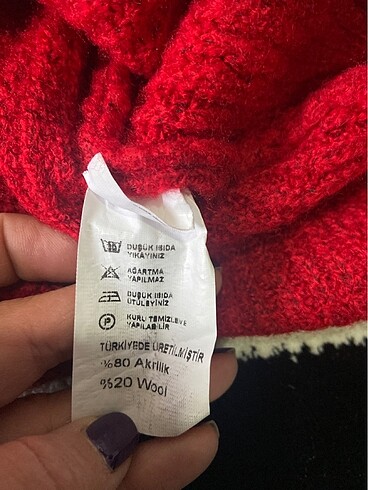 DÜŞÜK ISIDA
YIKAYINIZ
AĞARTMA
YAPILMAZ
DÜŞÜK ISIDA
ÜTÜLEYİNİZ
P
KURU TEMİZLEME
YAPILABİLİR
TÜRKİYEDE ÜRETİLMİŞTİR
%80 Akrilik
%20 Wool